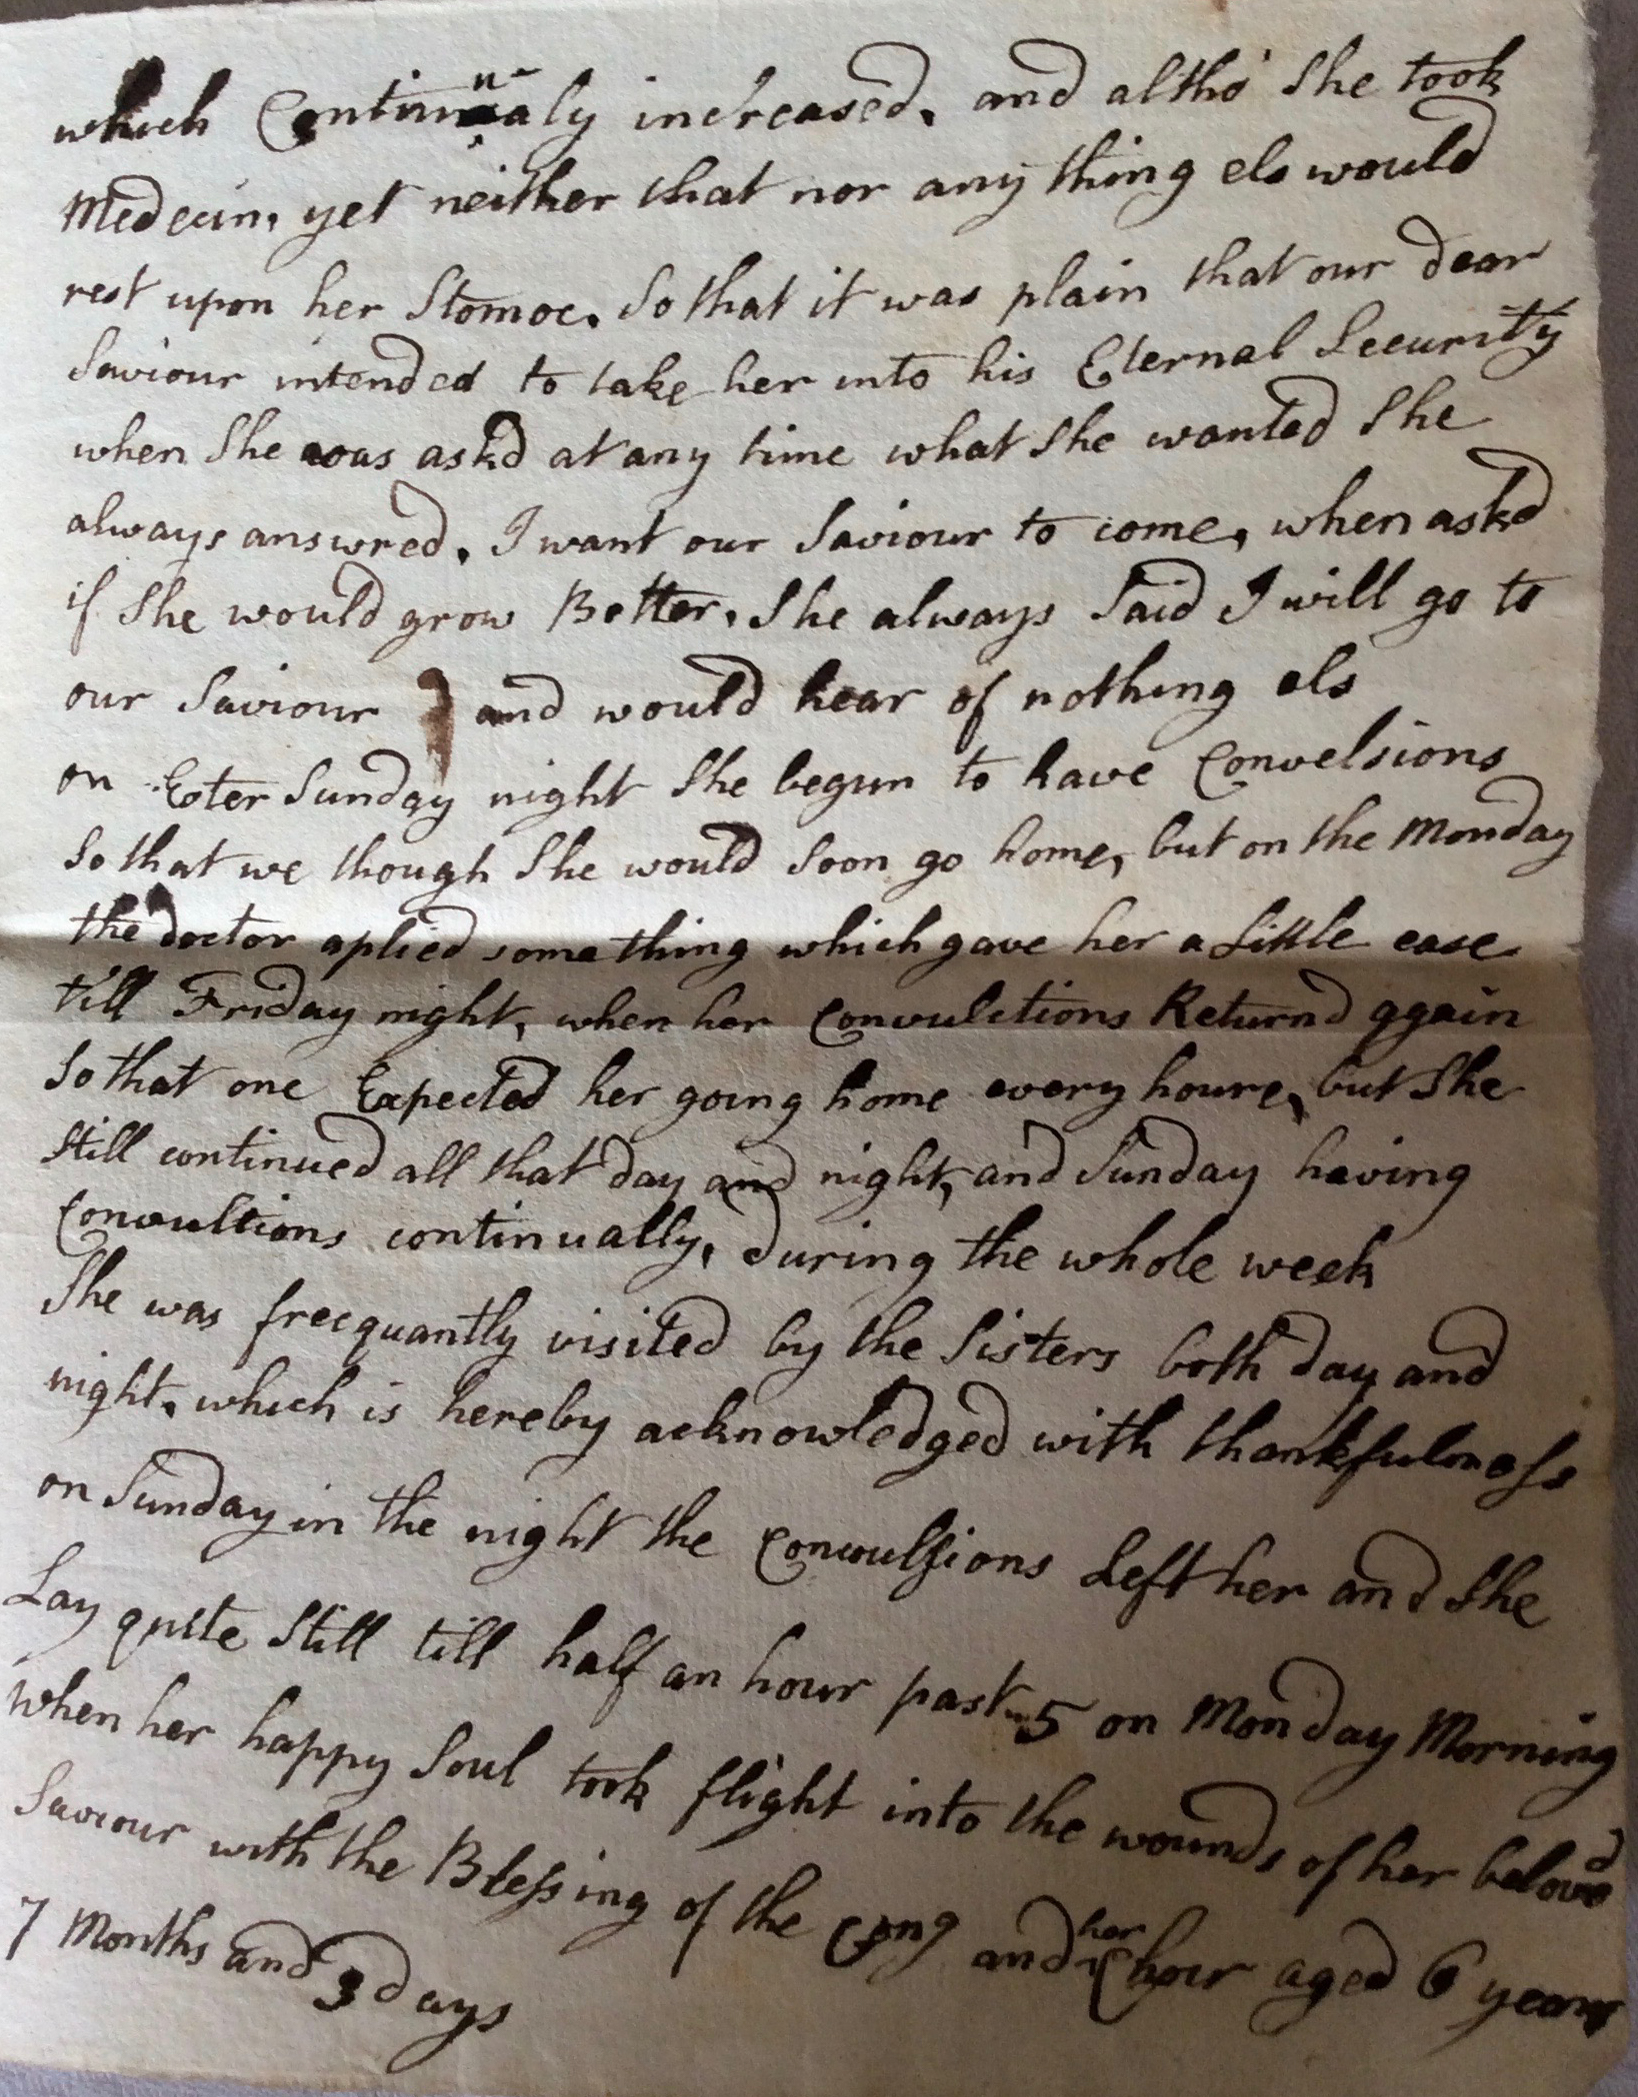 which Continualy increased, and altho' She took
Medecin, yet neither that nor any thing els would
rest upon her Stomoc. So that it was plain that our dear
Saviour intended to take her into his Eternal Security
when She was askd at any time what She wanted She
always answred, I want our Saviour to come, when askd
if She would grow Better, She always Said I will go to
our Saviour and would hear of nothing els
on Ester Sunday night She begun to have Convelsions
So that we though She would Soon go home, but on the Monday
the doctor aplied something which gave her a Little ease
till Friday night, when her Convulctions Returnd again
So that one Expected her going home every houre, but She
Still continued all that day and night, and Sunday having
Convultions continually, during the whole week
She was frecquantly visited by the Sisters both day and
night, which is hereby acknowledged with thankfulness
on Sunday in the night the Convulsions Left her and She
Lay quite Still till half an hour past 5 on Monday Morning
when her happy Soul took flight into the wounds of her belovd
Saviour with the Blessing of the Cong and her Choir aged 6 years
7 Months and 3 days